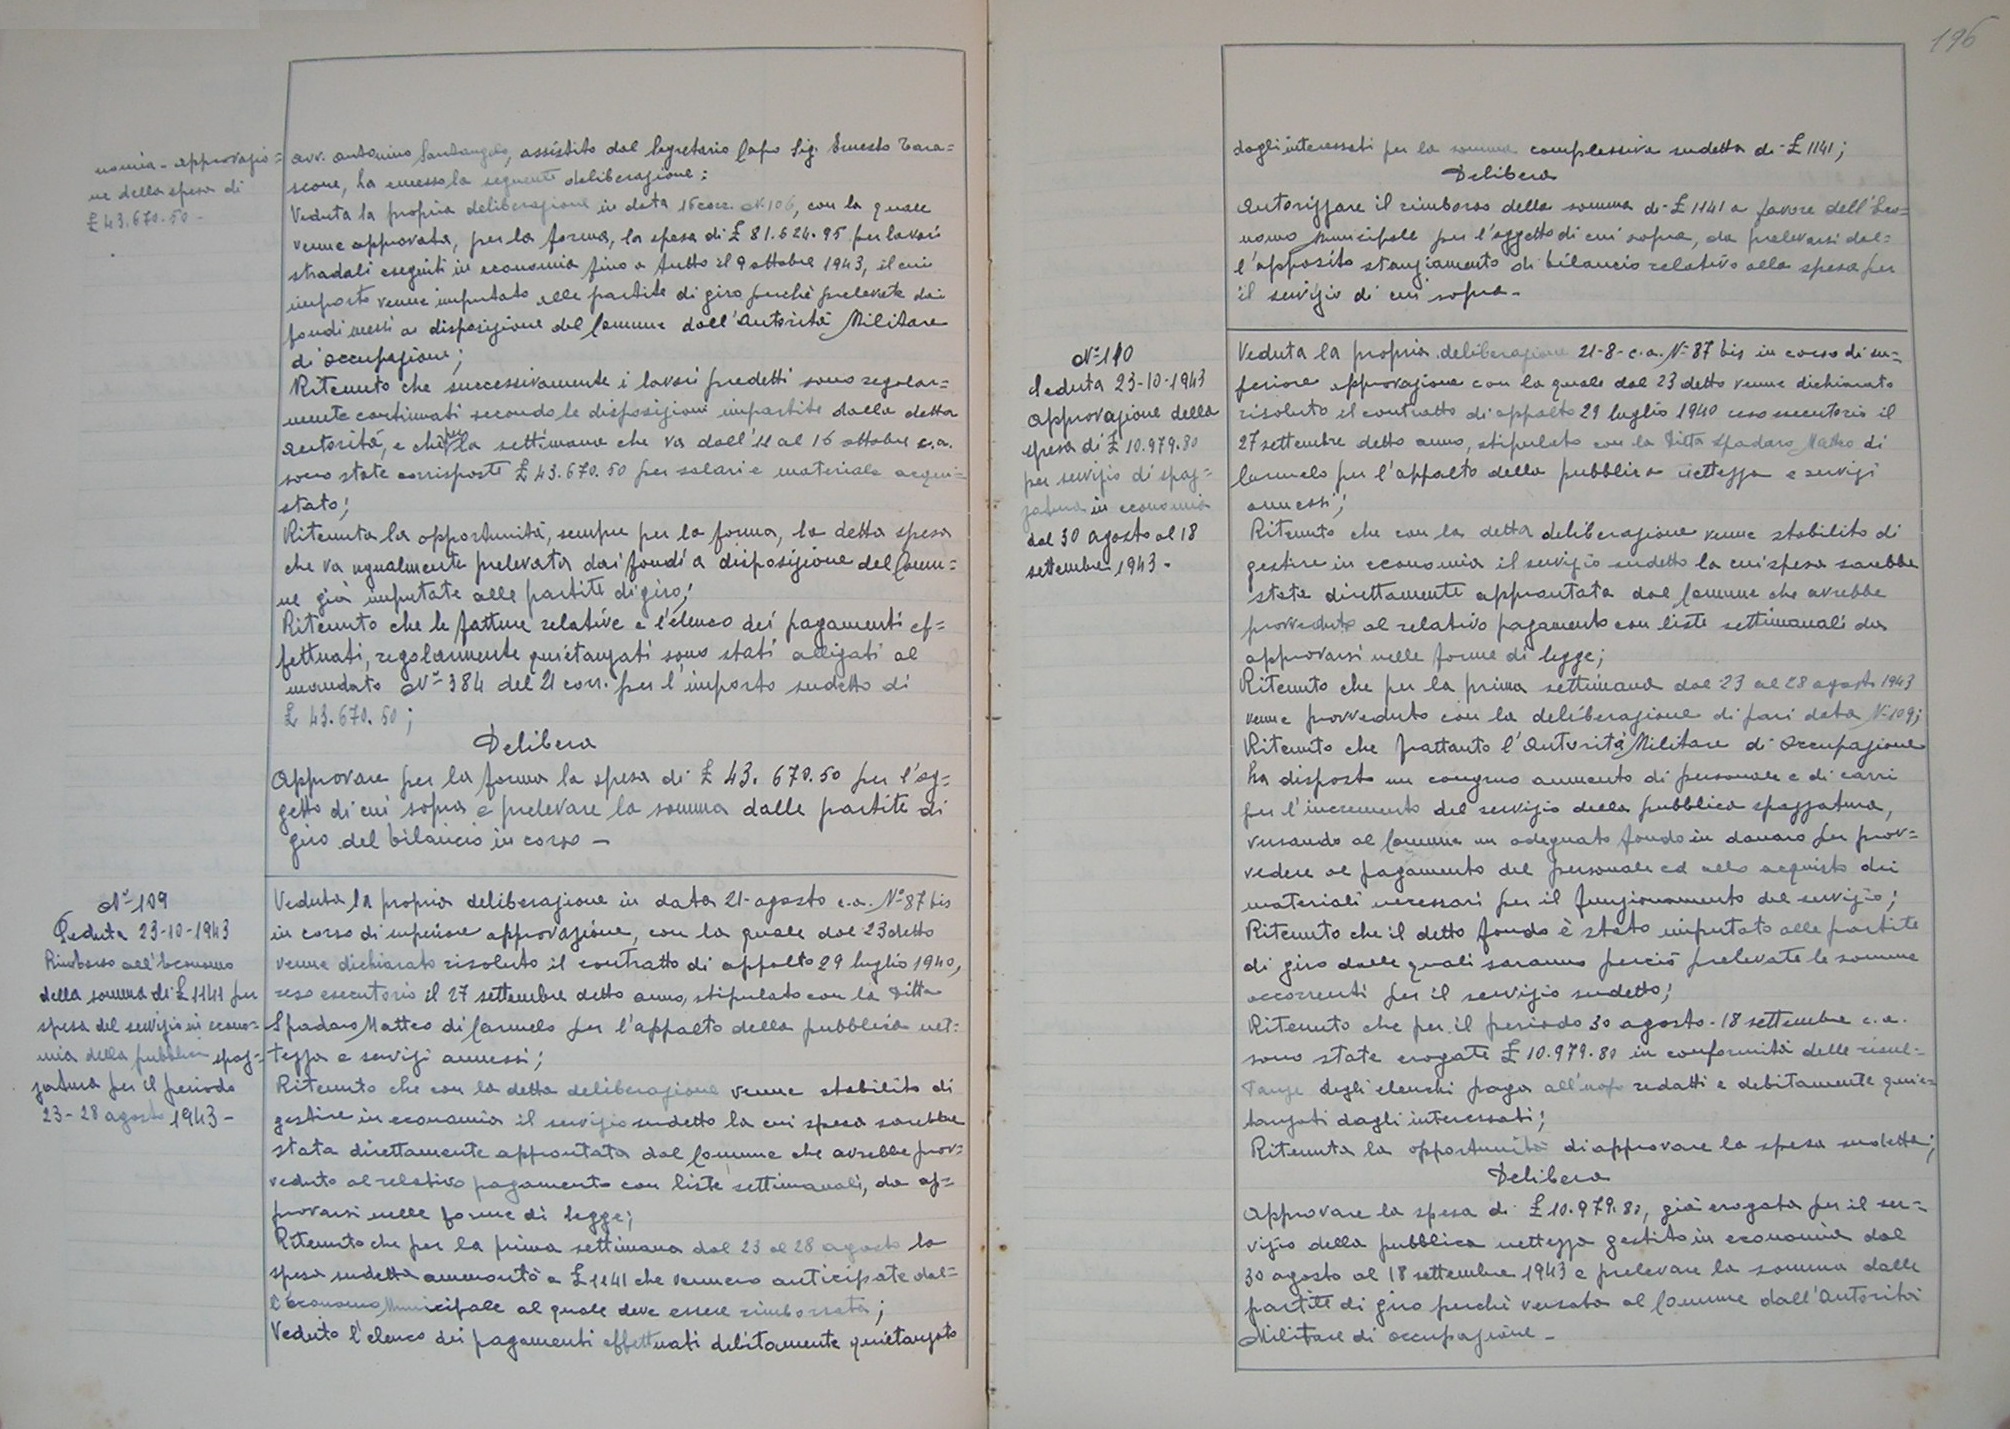 196
nomia - approvazio=
ne della spesa di
£ 43.670.50 -
avv. Antonino Santangelo, assistito dal Segretario Capo Sig. Ernesto Tara=
scone, ha emesso la seguente deliberazione:
Veduta la propria deliberazione in data 16 corr. N. 106, con la quale
venne approvata, per la forma, la spesa di £ 81.624.95 per lavori
stradali eseguiti in economia fino a tutto il 9 ottobre 1943, il cui
importo venne imputato alle partite di giro perchè prelevate dai
fondi messi a disposizione del Comune dall'Autorità Militare
di occupazione;
Ritenuto che successivamente i lavori predetti sono regolar=
mente continuati secondo le disposizioni impartite dalla detta
Autorità, e che per la settimana che va dall'11 al 16 ottobre c.a.
sono state corrisposte £ 43.670.50 per salari e materiale acqui=
stato;
Ritenuta la opportunità, sempre per la forma, la detta spesa
che va ugualmente prelevata dai fondi a disposizione del Comu=
ne già imputate alle partite di giro;
Ritenuto che le fatture relative e l'elenco dei pagamenti ef=
fettuati, regolarmente quietanzati sono stati allegati al
mandato N° 384 del 21 corr. per l'importo sudetto di
£ 43.670.50;
Delibera
Approvare per la forma la spesa di £ 43.670.50 per l'og=
getto di cui sopra e prelevare la somma dalle partite di
giro del bilancio in corso -
N° 109
Seduta 23-10-1943
Rimborso all'Economo
della somma di £ 1141 per
spesa del servizio in econo=
mia della pubblica spaz=
zatura per il periodo
23-28 agosto 1943 -
Veduta la propria deliberazione in data 21-agosto c.a. N° 87 bis
in corso di superiore approvazione, con la quale dal 23 detto
venne dichiarato risoluto il contratto di appalto 29 luglio 1940,
reso esecutorio il 27 settembre detto anno, stipulato con la Ditta
Spadaro Matteo di Carmelo per l'appalto della pubblica net=
tezza e servizi annessi;
Ritenuto che con la detta deliberazione venne stabilito di
gestire in economia il servizio sudetto la cui spesa sarebbe
stata direttamente approntata dal Comune che avrebbe prov=
veduto al relativo pagamento con liste settimanali, da ap=
provarsi nelle forme di legge;
Ritenuto che per la prima settimana dal 23 al 28 agosto la
spesa sudetta ammontò a £ 1141 che vennero anticipate dal=
l'Economo Municipale al quale deve essere rimborsata;
Veduto l'elenco dei pagamenti effettuati debitamente quietanzato
dagli interessati per la somma complessiva sudetta di £ 1141;
Delibera
Autorizzare il rimborso della somma di £ 1141 a favore dell'Eco=
nomo Municipale per l'oggetto di cui sopra, da prelevarsi dal=
l'apposito stanziamento di bilancio relativo alla spesa per
il servizio di cui sopra -
N° 110
Seduta 23-10-1943
Approvazione della
spesa di £ 10.979.80
per servizio di spaz=
zatura in economia
dal 30 agosto al 18
settembre 1943 -
Veduta la propria deliberazione 21-8-c.a. N° 87 bis in corso di su=
periore approvazione con la quale dal 23 detto venne dichiarato
risoluto il contratto di appalto 29 luglio 1940 reso esecutorio il
27 settembre detto anno, stipulato con la Ditta Spadaro Matteo di
Carmelo per l'appalto della pubblica nettezza e servizi
annessi;
Ritenuto che con la detta deliberazione venne stabilito di
gestire in economia il servizio sudetto la cui spesa sarebbe
stata direttamente approntata dal Comune che avrebbe
provveduto al relativo pagamento con liste settimanali da
approvarsi nelle forme di legge;
Ritenuto che per la prima settimana dal 23 al 28 agosto 1943
venne provveduto con la deliberazione di pari data N° 109;
Ritenuto che frattanto l'Autorità Militare di Occupazione
ha disposto un congruo aumento di personale e di carri
per l'incremento del servizio della pubblica spazzatura,
versando al Comune un adeguato fondo in danaro per prov=
vedere al pagamento del personale ed allo acquisto dei
materiali necessari per il funzionamento del servizio;
Ritenuto che il detto fondo è stato imputato alle partite
di giro dalle quali saranno perciò prelevate le somme
occorrenti per il servizio sudetto;
Ritenuto che per il periodo 30 agosto-18 settembre c.a.
sono state erogate £ 10.979.80 in conformità delle risul=
tanze degli elenchi paga all'uopo redatti e debitamente quie=
tanzati dagli interessati;
Ritenuta la opportunità di approvare la spesa sudetta;
Delibera
Approvare la spesa di £ 10.979.80, già erogata per il ser=
vizio della pubblica nettezza gestito in economia dal
30 agosto al 18 settembre 1943 e prelevare la somma dalle
partite di giro perchè versata al Comune dall'Autorità
Militare di occupazione -